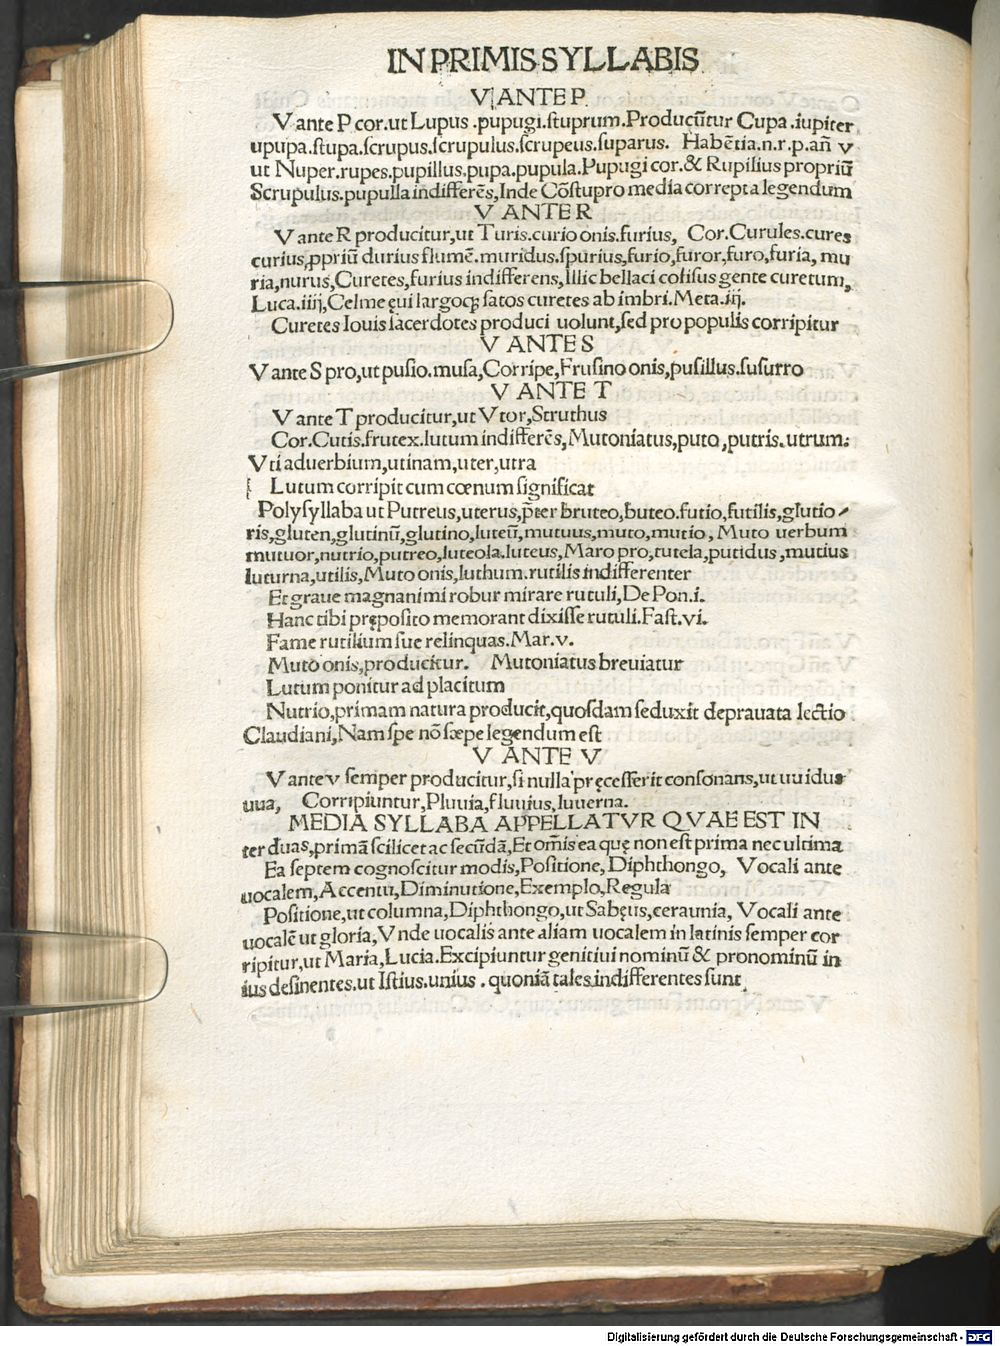 IN PRIMIS SYLLABIS
V ANTE P
V ante P cor.ut Lupus .pupugi.stuprum.Producūtur Cupa.iupiter
upupa.stupa.scrupus.scrupulus.scrupeus.suparus. Habētia.n.r.p.añ v
ut Nuper.rupes.pupillus.pupa.pupula.Pupugi cor.& Rupilius propriū
Scrupulus.pupulla indifferēs,Inde Cōstupro media correpta legendum
V ANTE R
V ante R producitur,ut Turis.curio onis.furius, Cor.Curules.cures
curius,ppriū durius flumē.muridus.spurius,furio,furor,furo,furia, mu
ria,nurus,Curetes,furius indifferens,Illic bellaci cōfisus gente curetum,
Luca.iiij,Celme ꝗui largoqꝫ satos curetes ab imbri.Meta.iij.
Curetes Iouis sacerdotes produci uolunt,sed pro populis corripitur
V ANTE S
V ante S pro,ut pusio.musa,Corripe,Frusino onis,pusillus.susurro
V ANTE T
V ante T producitur,ut Vtor,Struthus
Cor.Cutis.frutex.lutum indifferēs,Mutoniatus,puto,putris.utrum.
Vti aduerbium,utinam,uter,utra
Lutum corripit cum cœnum significat
Polysyllaba ut Putreus,uterus,p̄ter bruteo,buteo.futio,futilis,glutio
ris,gluten,glutinū,glutino,luteū,mutuus,muto,mutio, Muto uerbum
mutuor,nutrio,putreo,luteola.luteus,Maro pro,tutela,putidus,mutius
luturna,utilis,Muto onis,luthum.rutilis indifferenter
Et graue magnanimi robur mirare rutuli,De Pon.i.
Hanc tibi pręposito memorant dixisse rutuli.Fast.vi.
Fame rutilium sue relinquas.Mar.v.
Muto onis,producitur. Mutoniatus breuiatur
Lutum ponitur ad placitum
Nutrio,primam natura producit,quosdam seduxit deprauata lectio
Claudiani,Nam spe nō sæpe legendum est
V ANTE V
V ante v semper producitur,si nulla pręcesserit consonans,ut uuidus
uua, Corripiuntur,Pluuia,fluuius,Iuuerna.
MEDIA SYLLABA APPELLATVR QVAE EST IN
ter duas,primā scilicet ac secūdā,Et om̄is ea quę non est prima nec ultima
Ea septem cognoscitur modis,Positione, Diphthongo, Vocali ante
uocalem,Accentu,Diminutione,Exemplo,Regula
Positione,ut columna,Diphthongo,ut Sabęus,ceraunia, Vocali ante
uocalē ut gloria,Vnde uocalis ante aliam uocalem in latinis semper cor
ripitur,ut Maria,Lucia.Excipiuntur genitiui nominū & pronominū in
ius desinentes.ut Istius.unius . quoniā tales indifferentes sunt.
Digitalisierung gefördert durch die Deutsche Forschungsgemeinschaft - DFG